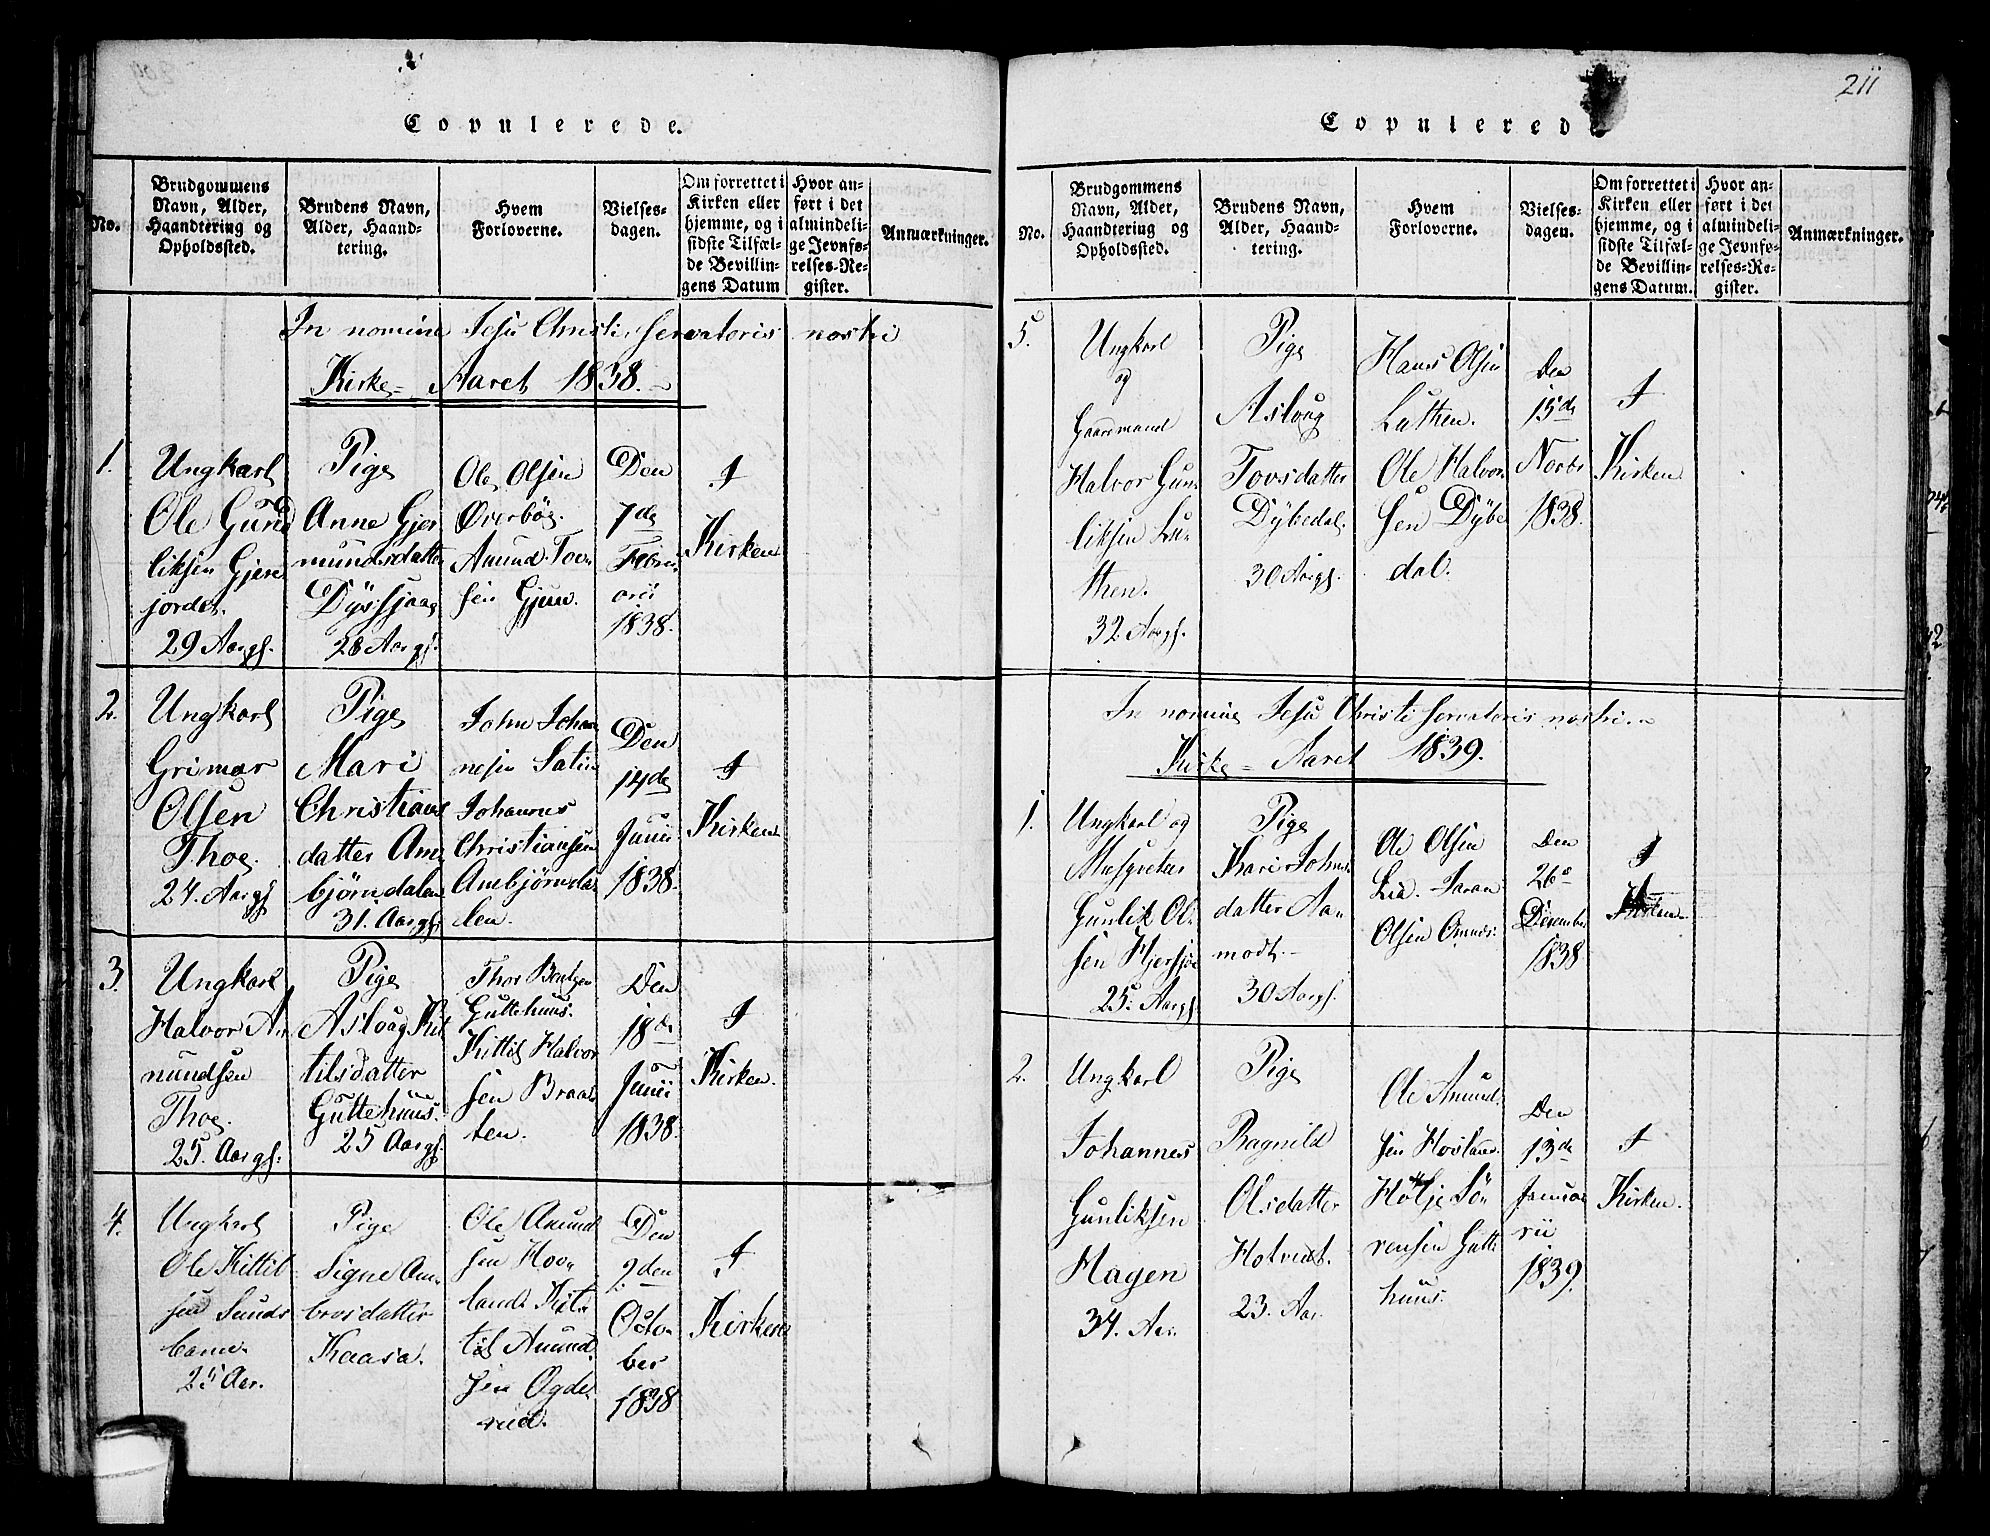 Copulerede.
No.
Brudgommens
Navn, Alder,
Haandtering og
Opholdssted.
Brudens Navn,
Alder, Haand-
tering.
Hvem
Forloverne.
Vielses-
dagen.
Om forrettet i
Kirken eller
hjemme, og i
sidste Tilfæl-
de Bevillin-
gens Datum
Hvor an-
ført i det
almindeli-
ge Jevnfø-
relses-Re-
gister.
Anmærkninger.
In nomine Jesu Christi servatoris nostri
Kirke- Aaret 1838.
1.
Ungkarl
Ole Gund
liksen Gjere
jordet.
29 Aarg.
Pige
Anne Gjer
mundsdatter
28 Aarg.
Ole Olsen
Øverbøe.
Amund Tov
sen Gjuve.
Den
7de
Febru
arii
1838.
I
Kirken
2.
Ungkarl
Grimar
Olsen
Thoe.
24. Aarg
Pige
Mari
Christians
datter Am
bjørndalen
31. Aarg.
John Johan
nesen
Johannes
Christiansen
Ambjørnda
len.
Den
14de
Junii
1838.
I
Kirken
3.
Ungkarl
Halvor A
mundsen
Thoe.
25. Aarg.
Pige
Aslaug Kit
tilsdatter
Guttehuus.
25 Aarg.
Thor Bentsen
Guttehuus.
Kittil Halvor
sen Braa
ten.
Den
18de
Junii
1838.
I
Kirken.
4.
Ungkarl
Ole Kittil
sen Sunds
25 Aar.
Pige
Signe Am
brosdatter
Kaasa.
Ole Amund
sen Hov
land. Kit
til Amund
sen Ogde
rud.
Den
2den
Octo
ber
1838
I
Kirken
211
Copulerede
No.
Brudgommens
Navn, Alder,
Haandtering og
Opholdssted.
Brudens Navn,
Alder, Haand-
tering.
Hvem
Forloverne.
Vielses-
dagen.
Om forrettet i
Kirken eller
hjemme, og i
sidste Tilfæl-
de Bevillin-
gens Datum.
Hvor an-
ført i det
almindeli-
ge Jevnfø-
relses-Re-
gister.
Anmærkninger.
5.
Ungkarl
og
Gaardmand
Halvor Gun
liksen Lu-
then.
32. Aarg.
Pige
Aslaug
Tovsdatter
Dybedal.
30 Aarg.
Hans Olsen
Luthen.
Ole Halvor
sen Dybe
dal.
Den
15de
Novbr
1838.
I
Kirken
In nomine Jesu Christi servatoris nostri.
Kirke- Aaret 1839.
1.
Ungkarl og
Musqueter
Gunlik Ol
sen Hjersjøe
25. Aarg
Pige
Kari Johns
datter Aa-
modt.
30 Aarg.
Ole Olsen
Lia.
Olsen
Den
26
December
1838
I
Kirken
2.
Ungkarl
Johannes
Gunliksen
Hagen
34. Aar
Pige
Ragnild
Olsdatter
Holtvedt.
23. Aar.
Ole Amund
sen Hovland.
Høljе Sø
rensen Gutte
huus.
Den
13de
Janua
rii
1839.
I
Kirken.